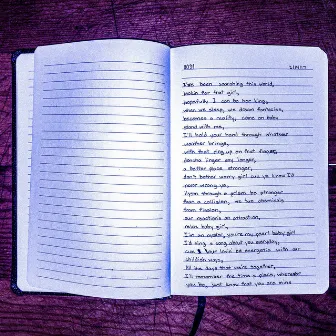 I've been searching this world,
lookin for that girl,
hopefully I can be her king,
when we sleep, we dream fantasies,
becomes a reality, come on baby
stand with me,
I'll hold your hand through whatever
weather brings,
with that ring up on that finger,
linger any longer,
a better place stronger,
don't bother worry girl cuz ya know I'd
never wrong ya,
through a prism be stronger
than a collision, we two chemicals
from fission,
our reactions an attraction,
baby girl,
I'm an avatar, you're my pearl baby girl
I'd sing a song about you everyday,
cuz our love be energetic with our
childish ways,
All the days that we're together,
I'll remember the time n place, wherever
you be, just know that you are mine